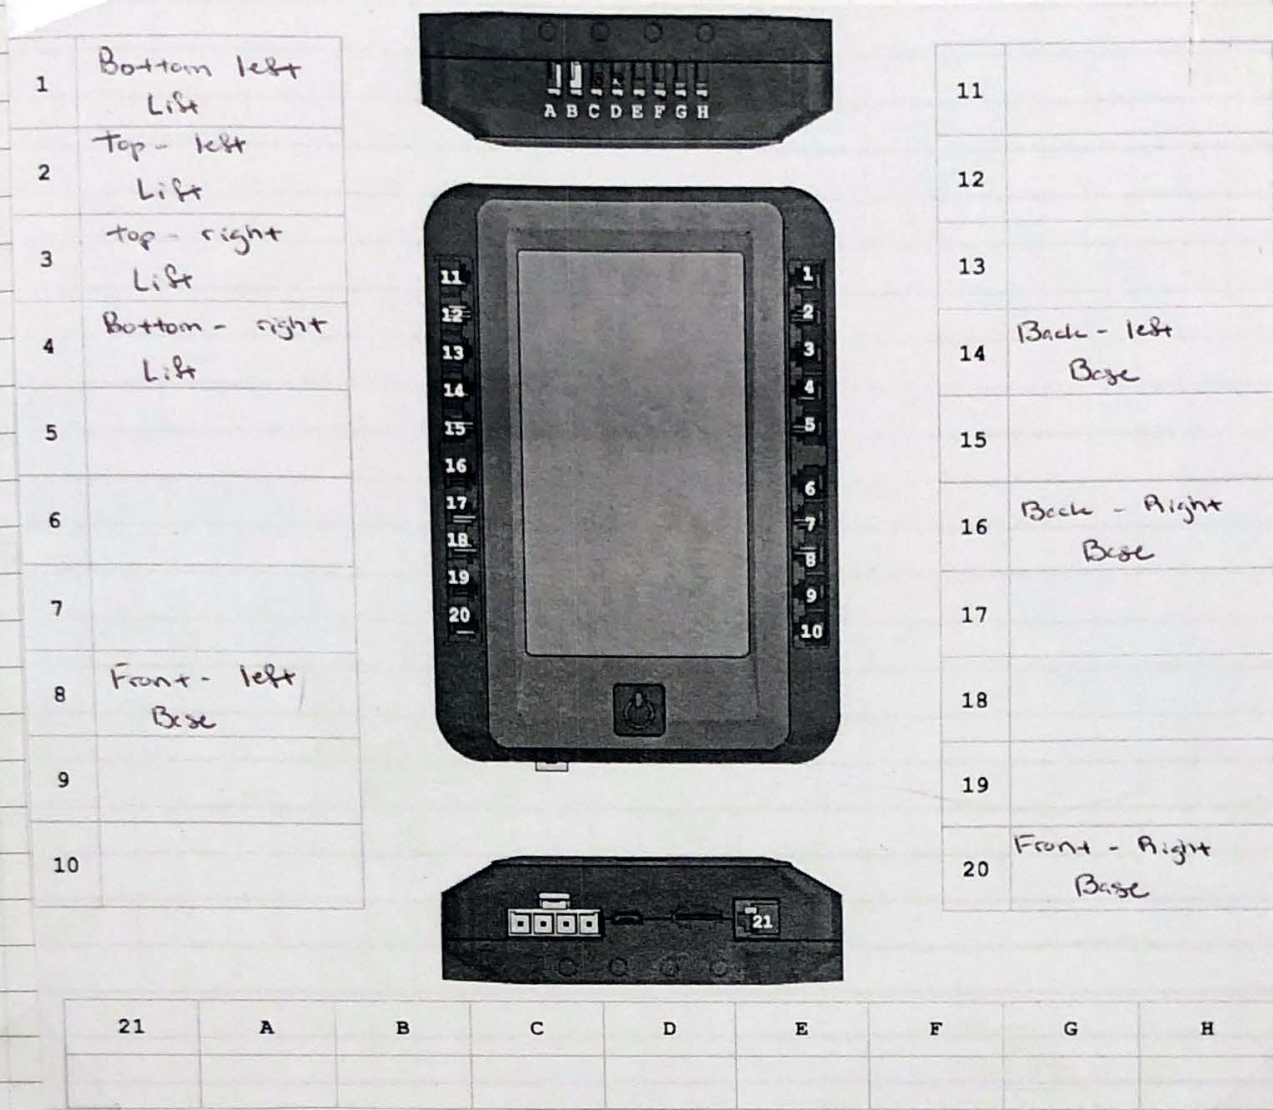 1
Bottom left
Lift
2
Top - left
Lift
3
top - right
Lift
4
Bottom - right
Lift
5
6
7
8
Front - left
Base
9
10
A B C D E F G H
11
12
13
14
15
16
17
18
19
20
1
2
3
4
5
6
7
8
9
10
21
11
12
13
14
Back - left
Base
15
16
Back - Right
Base
17
18
19
20
Front - Right
Base
21 A B C D E F G H